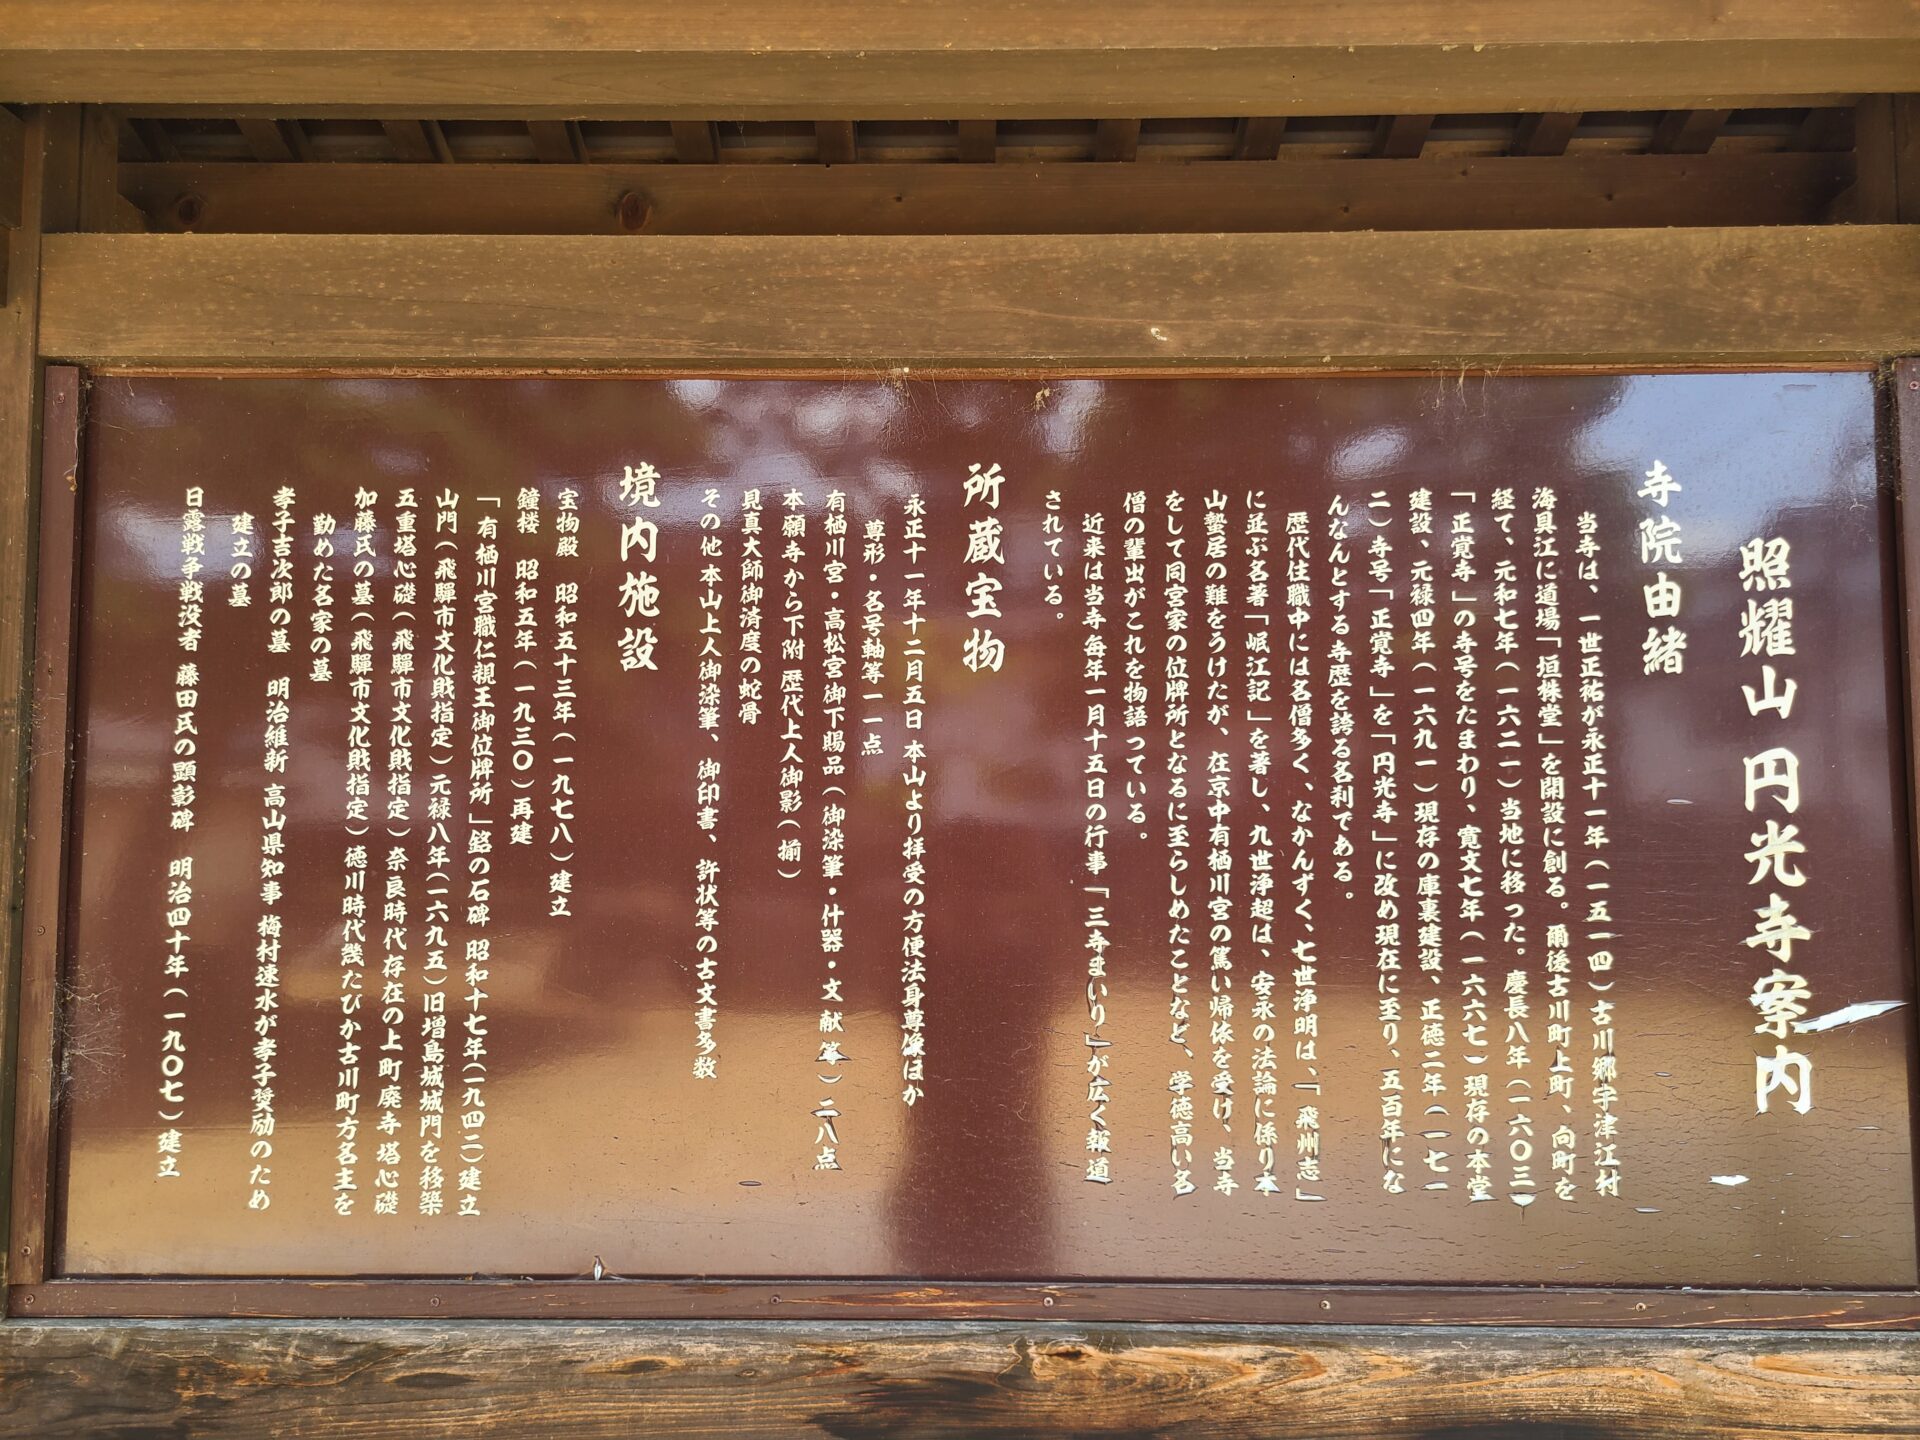 照耀山 円光寺案内
寺院由緒
当寺は、一世正祐が永正十一年(一五一四)古川郷宇津江村
海具江に道場「垣株堂」を開設に創る。爾後古川町上町、向町を
経て、元和七年(一六二一)当地に移った。慶長八年(一六〇三)
「正覚寺」の寺号をたまわり、寛文七年(一六六七)現存の本堂
建設、元禄四年(一六九一)現存の庫裏建設、正徳二年(一七一
二)寺号「正覚寺」を「円光寺」に改め現在に至り、五百年にな
んなんとする寺歴を誇る名刹である。
歴代住職中には名僧多く、なかんずく、七世浄明は、「飛州志」
に並ぶ名著「岷江記」を著し、九世浄超は、安永の法論に係り本
山蟄居の難をうけたが、在京中有栖川宮の篤い帰依を受け、当寺
をして同宮家の位牌所となるに至らしめたことなど、学徳高い名
僧の輩出がこれを物語っている。
近来は当寺毎年一月十五日の行事「三寺まいり」が広く報道
されている。
所蔵宝物
永正十一年十二月五日 本山より拝受の方便法身尊像ほか
尊形・名号軸等一一点
有栖川宮・高松宮御下賜品(御染筆・什器・文献等)二八点
本願寺から下附 歴代上人御影(揃)
見真大師御済度の蛇骨
その他 本山上人御染筆、御印書、許状等の古文書多数
境内施設
宝物殿 昭和五十三年(一九七八)建立
鐘楼 昭和五年(一九三〇)再建
「有栖川宮職仁親王御位牌所」銘の石碑 昭和十七年(一九四二)建立
山門(飛騨市文化財指定)元禄八年(一六九五)旧増島城城門を移築
五重塔心礎(飛騨市文化財指定)奈良時代存在の上町廃寺塔心礎
加藤氏の墓(飛騨市文化財指定)徳川時代幾たびか古川町方名主を
勤めた名家の墓
孝子吉次郎の墓 明治維新 高山県知事 梅村速水が孝子奨励のため
建立の墓
日露戦争戦没者 藤田氏の顕彰碑 明治四十年(一九〇七)建立